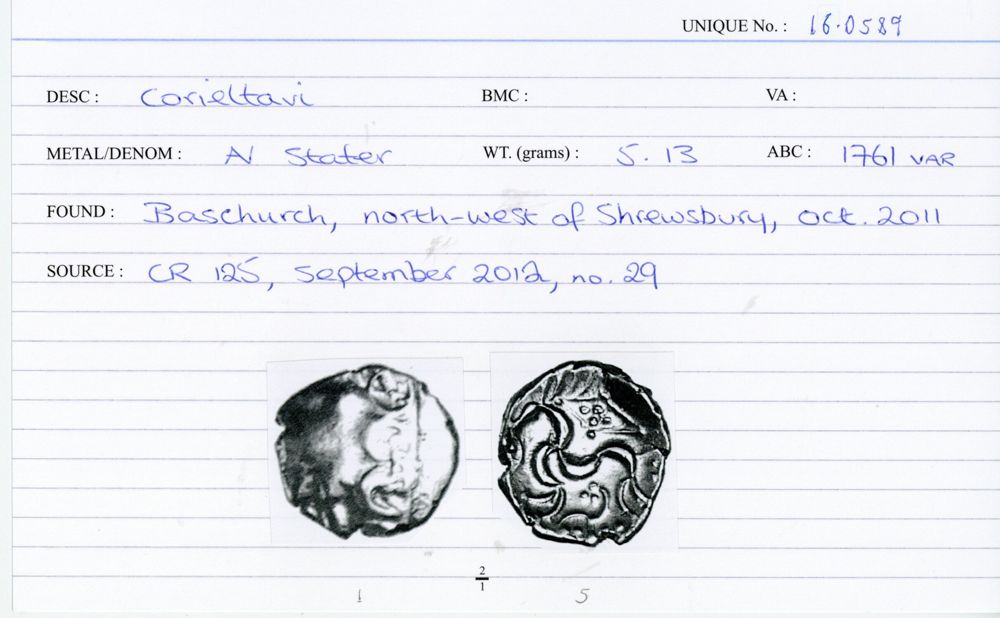 UNIQUE No. : 16.0589
DESC : Corieltavi BMC : VA :
METAL/DENOM : AV Stater WT. (grams) : 5.13 ABC : 1761 VAR
FOUND : Baschurch, north-west of Shrewsbury, Oct. 2011
SOURCE : CR 125, September 2012, no. 29
2
1
1 5